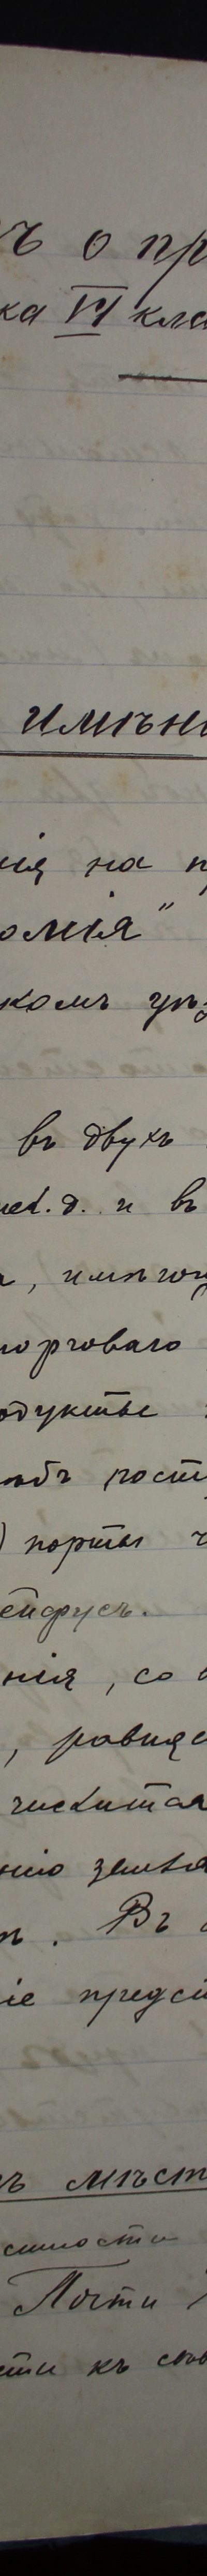 ъ о пр
ка VI кла
имѣні
нія на п
омія"
комъ уѣз
въ двухъ
жел. д. и въ
а, имѣющ
торговаго
одукты
хлѣбъ пост
) порты ч
ейфусъ.
нія, со в
, равняе
числится
нію земля
ъ. Въ
іе предст
ъ мѣст
сти
Почти
сти къ